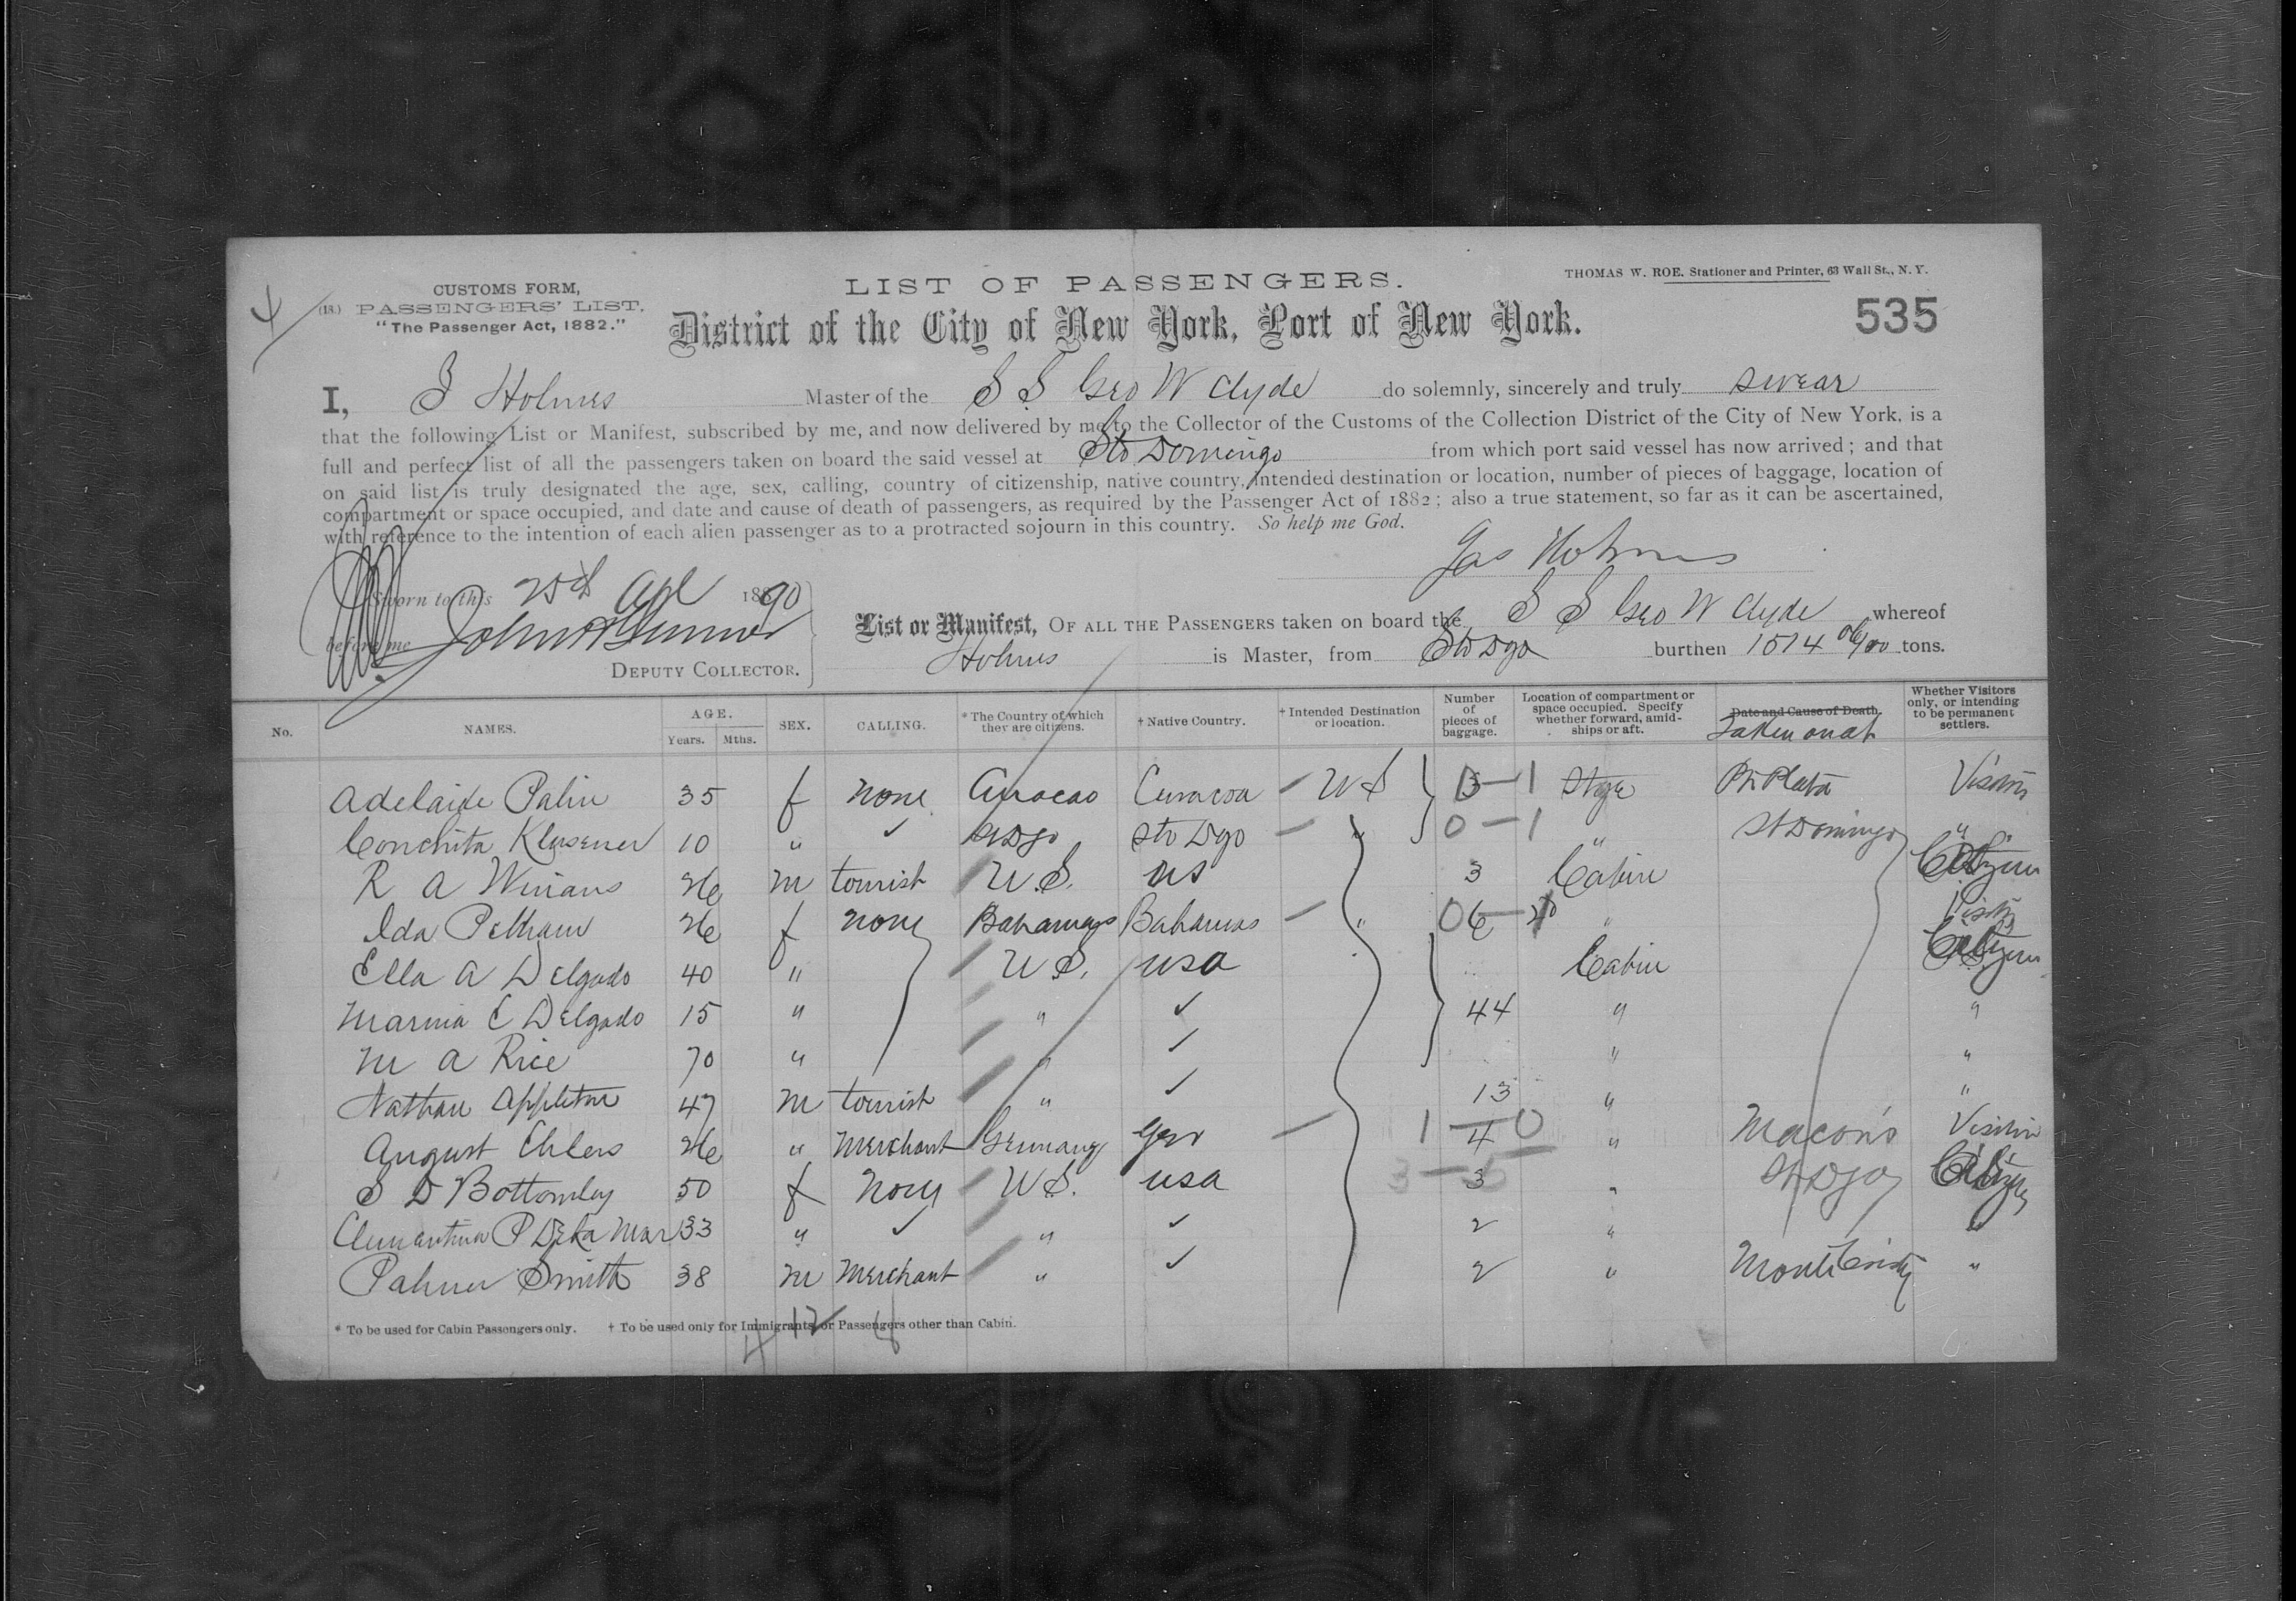 CUSTOMS FORM,
(18.) PASSENGERS' LIST.
"The Passenger Act, 1882."
LIST OF PASSENGERS.
THOMAS W. ROE. Stationer and Printer, 63 Wall St., N. Y.
District of the City of New York, Port of New York.
535
I, J Holmes Master of the S S Geo W Clyde do solemnly, sincerely and truly swear
that the following List or Manifest, subscribed by me, and now delivered by me to the Collector of the Customs of the Collection District of the City of New York, is a
full and perfect list of all the passengers taken on board the said vessel at Sto Domingo from which port said vessel has now arrived; and that
on said list is truly designated the age, sex, calling, country of citizenship, native country, intended destination or location, number of pieces of baggage, location of
compartment or space occupied, and date and cause of death of passengers, as required by the Passenger Act of 1882; also a true statement, so far as it can be ascertained,
with reference to the intention of each alien passenger as to a protracted sojourn in this country. So help me God.
Jas Holmes
Sworn to this 25th Apl 1890
before me
DEPUTY COLLECTOR.
List or Manifest, OF ALL THE PASSENGERS taken on board the S S Geo W Clyde whereof
Holmes is Master, from Sto Dgo burthen 1574 tons.
No. NAMES. AGE. Years. Mths. SEX. CALLING. * The Country of which they are citizens. † Native Country. † Intended Destination or location. Number of pieces of baggage. Location of compartment or space occupied. Specify whether forward, amid-ships or aft. Date and Cause of Death. Taken on at Whether Visitors only, or intending to be permanent settlers.
Adelaide Palin 35 f none Curacao Curacoa U S 3 0-1 Stge Pt Plata Visitor
Conchita Klusener 10 " ✓ St Dgo Sto Dgo " 0-1 " St Domingo "
R A Winans 26 m tourist U.S. US 3 Cabin Citizen
Ida Pelham 26 f none Bahamas Bahamas " 6 " Visitor
Ella A Delgado 40 " U.S. USA Cabin Citizen
Marina E Delgado 15 " " ✓ 44 " "
M A Rice 70 " " ✓ " "
Nathan Appleton 47 m tourist " ✓ 13 " "
August Ehlers 26 " Merchant Germany Ger 1-0 4 " Macoris Visitor
S D Bottomley 50 f None U.S. USA 3 " St Dgo Citizen
P De La Mar 33 " ✓ " ✓ 2 " "
Palmer Smith 38 m Merchant " ✓ 2 " Monti Cristy "
* To be used for Cabin Passengers only. † To be used only for Immigrants, or Passengers other than Cabin.
4 12 8